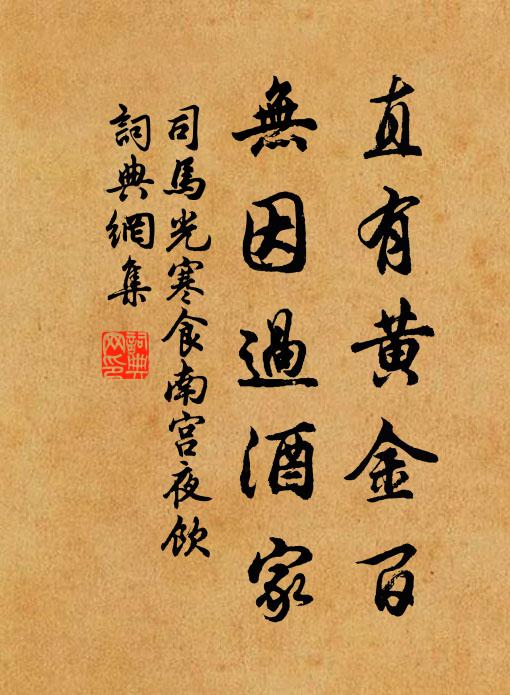 直有黄金百
無因過酒家
司馬光寒食南宫夜飲
詞典網集
詞典
网印